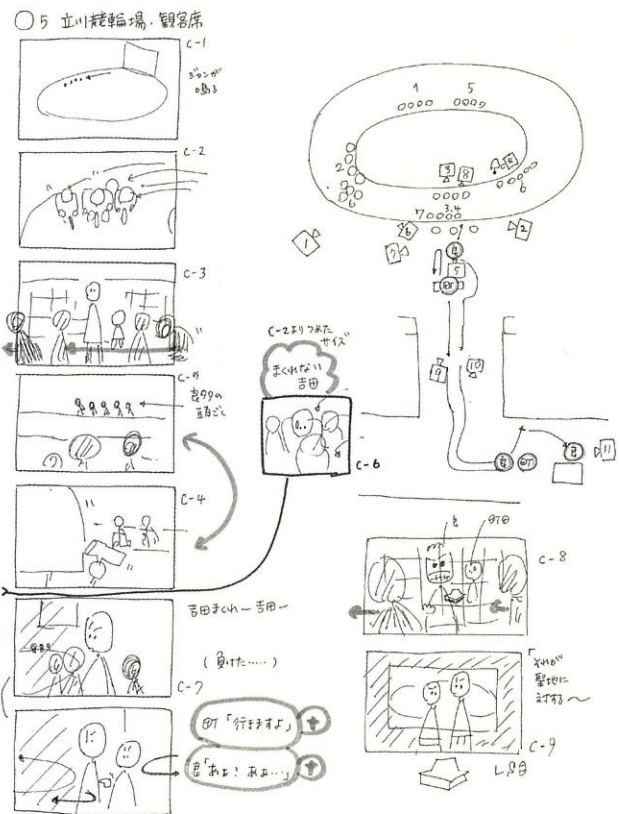 ○5 立川競輪場・観客席
C-1
ジャンが
鳴る
C-2
C-3
C-5
頭ごし
C-4
C-2よりつめた
サイズ
まくれない
吉田
C-6
吉田まくれー吉田ー
(負けた……)
C-7
町T「行きますよ」
君「あぁ! あぁ…」
1
5
2
3
8
4
6
3.4
7
6
1
7
2
5
町T
9
10
町T
11
C-8
「それが
聖地に
対する〜
C-9